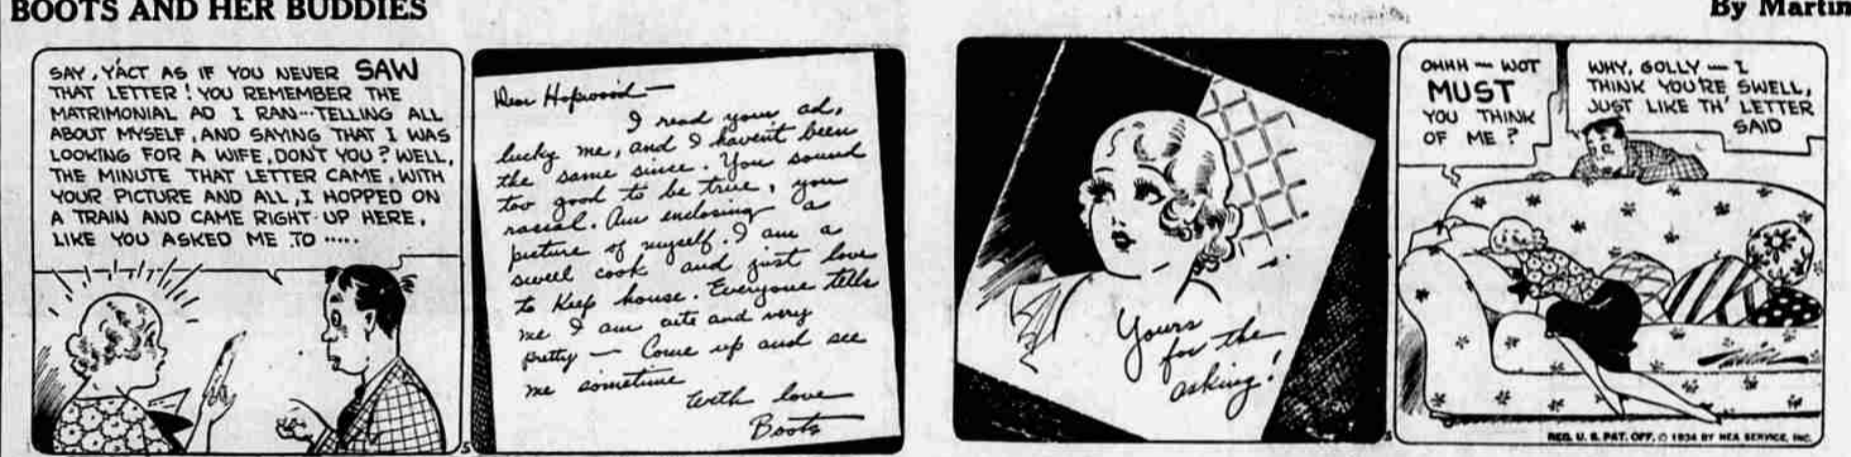 BOOTS AND HER BUDDIES
By Martin
SAY, Y'ACT AS IF YOU NEVER SAW
THAT LETTER! YOU REMEMBER THE
MATRIMONIAL AD I RAN--TELLING ALL
ABOUT MYSELF, AND SAYING THAT I WAS
LOOKING FOR A WIFE, DON'T YOU? WELL,
THE MINUTE THAT LETTER CAME, WITH
YOUR PICTURE AND ALL, I HOPPED ON
A TRAIN AND CAME RIGHT UP HERE,
LIKE YOU ASKED ME TO .....
5
Dear Hopwood —
I read your ad,
lucky me, and I havent been
the same since. You sound
too good to be true, you
rascal. Am enclosing a
picture of myself. I am a
sweel cook and just love
to keep house. Everyone tells
me I am cute and very
pretty — Come up and see
me sometime
With love
Boots
Yours
for the
asking!
OHHH — WOT
MUST
YOU THINK
OF ME?
WHY, GOLLY — I
THINK YOU'RE SWELL,
JUST LIKE TH' LETTER
SAID
REG. U. S. PAT. OFF. © 1934 BY NEA SERVICE, INC.